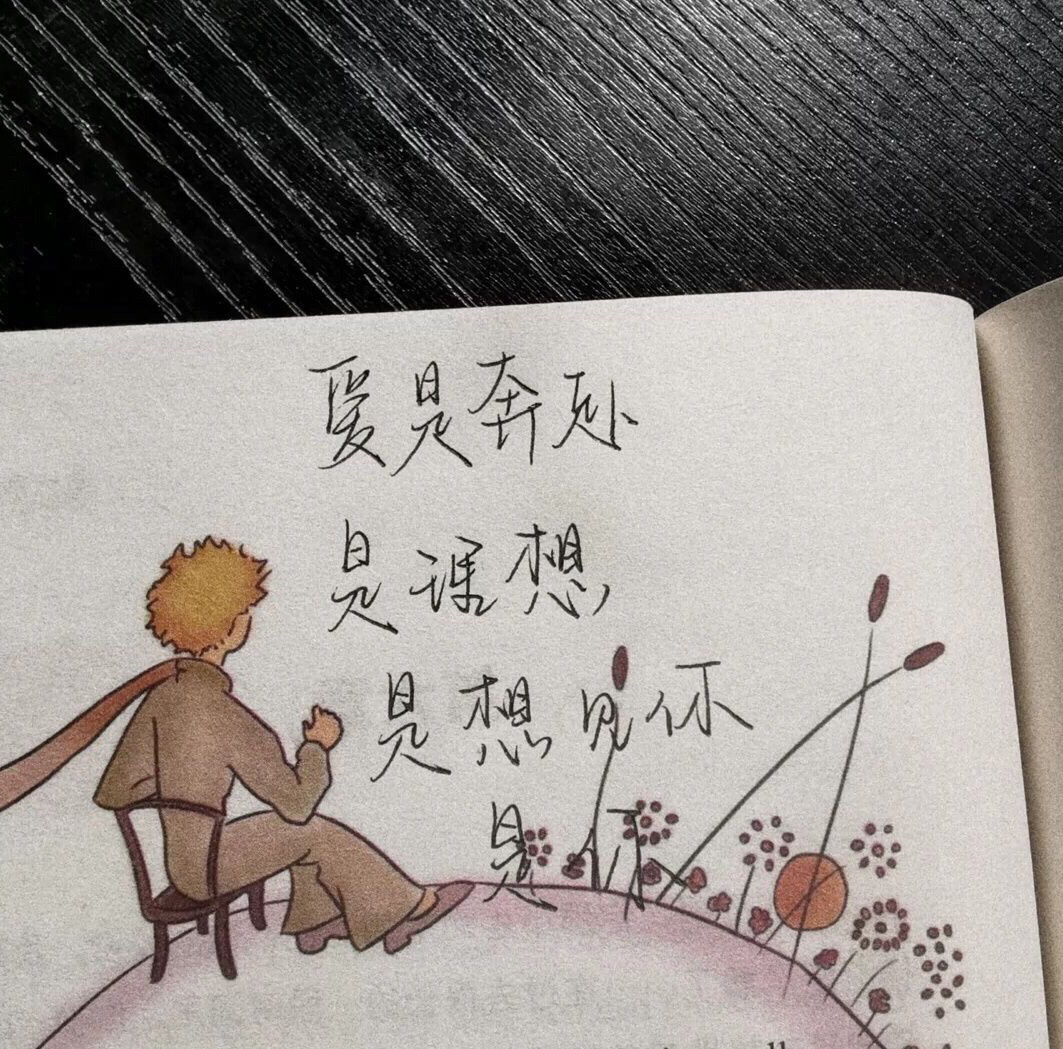 爱是奔赴
是想
是想见你
是你